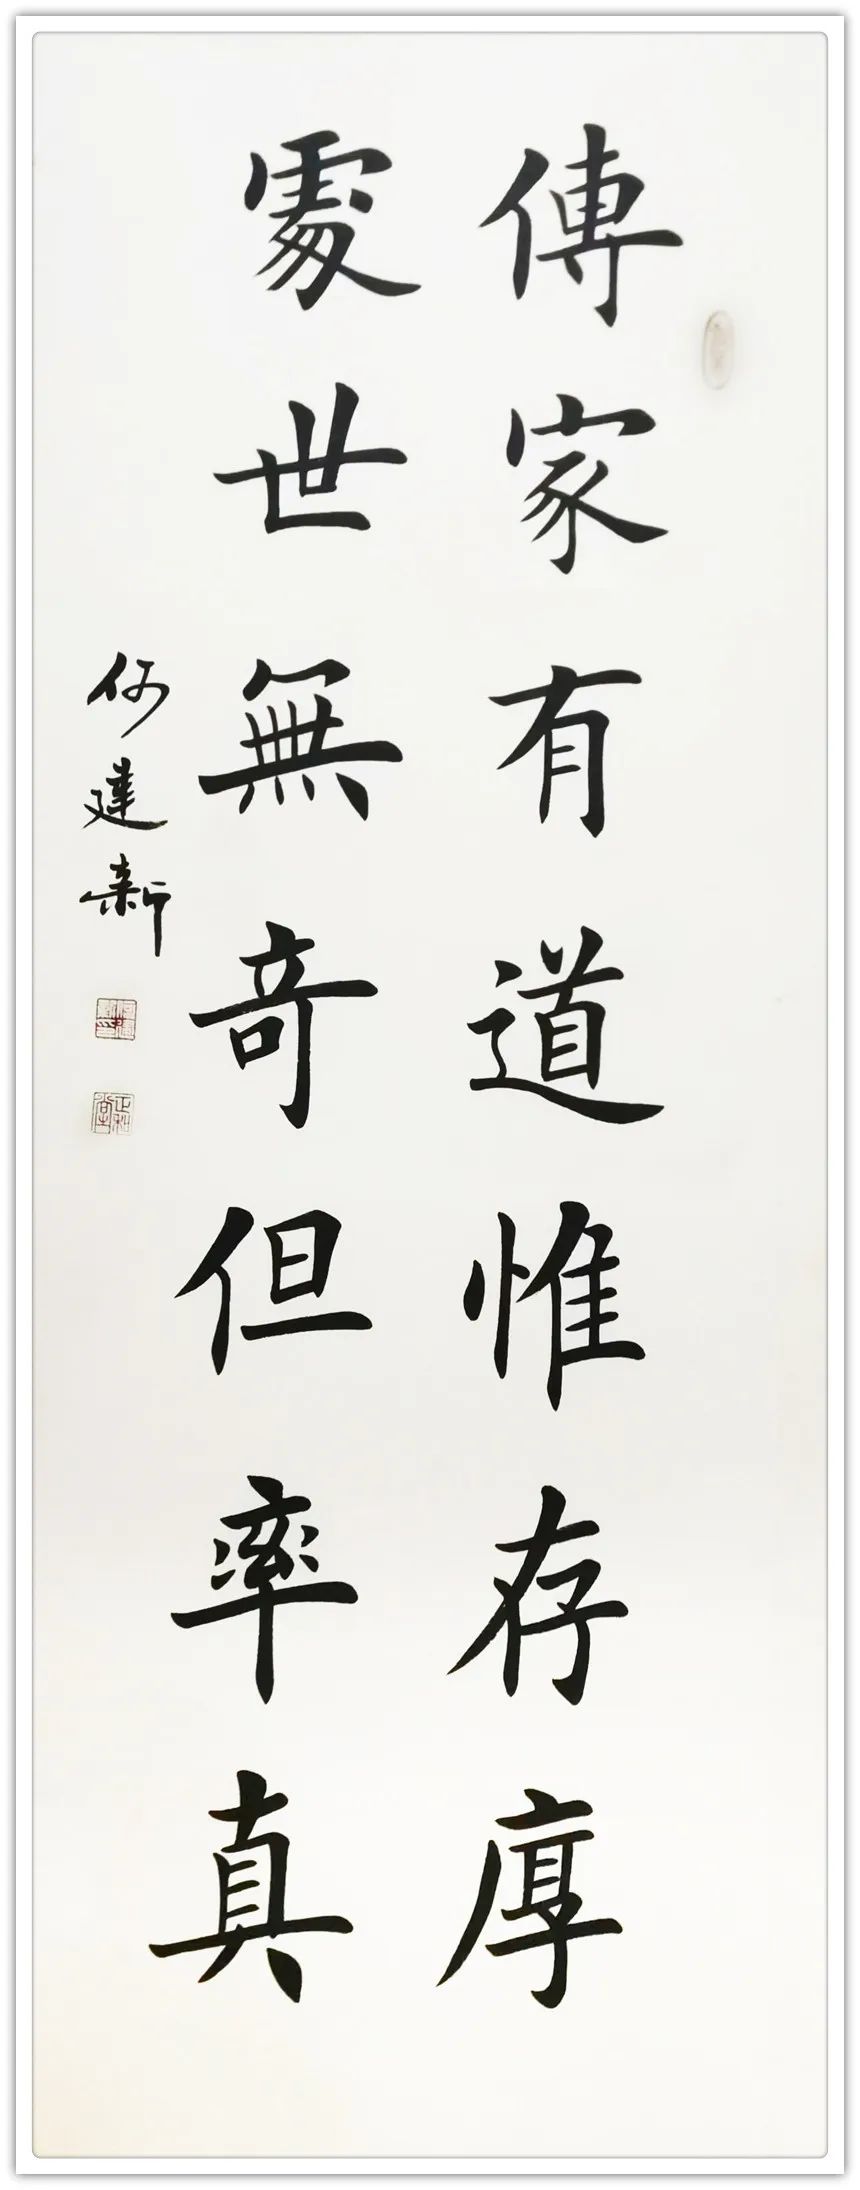 傳家有道惟存厚
處世無奇但率真
何建新
正和堂